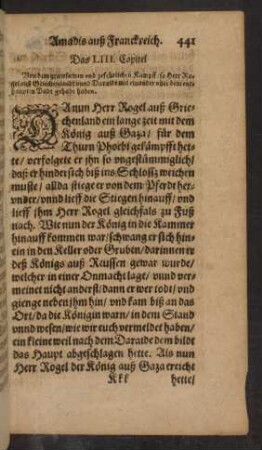 Amadis auß Franckreich. 441
Das LIII. Capitel
Von dem grawsamen und gefährlichen Kampff, so Herr Ro-
gel auß Griechenland unnd Daraide mit einander ohne dem ent-
Bild gehabt haben.
DA nun Herr Rogel auß Grie-
chenland ein lange zeit mit dem
König auß Gaza / für dem
Thurn Phoebi gekämpfft het-
te / verfolgete er jhn so ungestümmiglich /
daß er hinder sich biß ins Schlossz weichen
muste / allda stiege er von dem Pferdt her-
under / unnd lieff die Stiegen hinauff / und
lieff jhm Herr Rogel gleichfals zu Fuß
nach. Wie nun der König in die Kammer
hinauff kommen war / schwang er sich hin-
ein in den Keller oder Gruben / darinnen er
deß Königs auß Reussen gewar wurde /
welcher in einer Onmacht lagt / unnd ver-
meinet nicht anderst / dann er wer todt / und
gienge neben jhm hin / und kam biß an das
Ort / da die Königin warn / in dem Stand
unnd wesen / wie wir euch vermeldet haben /
ein kleine weil nach dem Daraide dem bildt
das Haupt abgeschlagen hette. Als nun
Herr Rogel der König auß Gaza erreicht
Kkk hette /